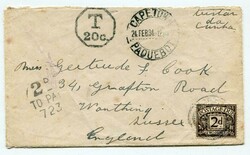 Tristan
da
Cunha
T
20c.
CAPETOWN
24 FEB 34
PAQUEBOT
Miss Gertrude L. Cook
34, Grafton Road
Worthing
Sussex
England
2D
TO PAY
723
2d